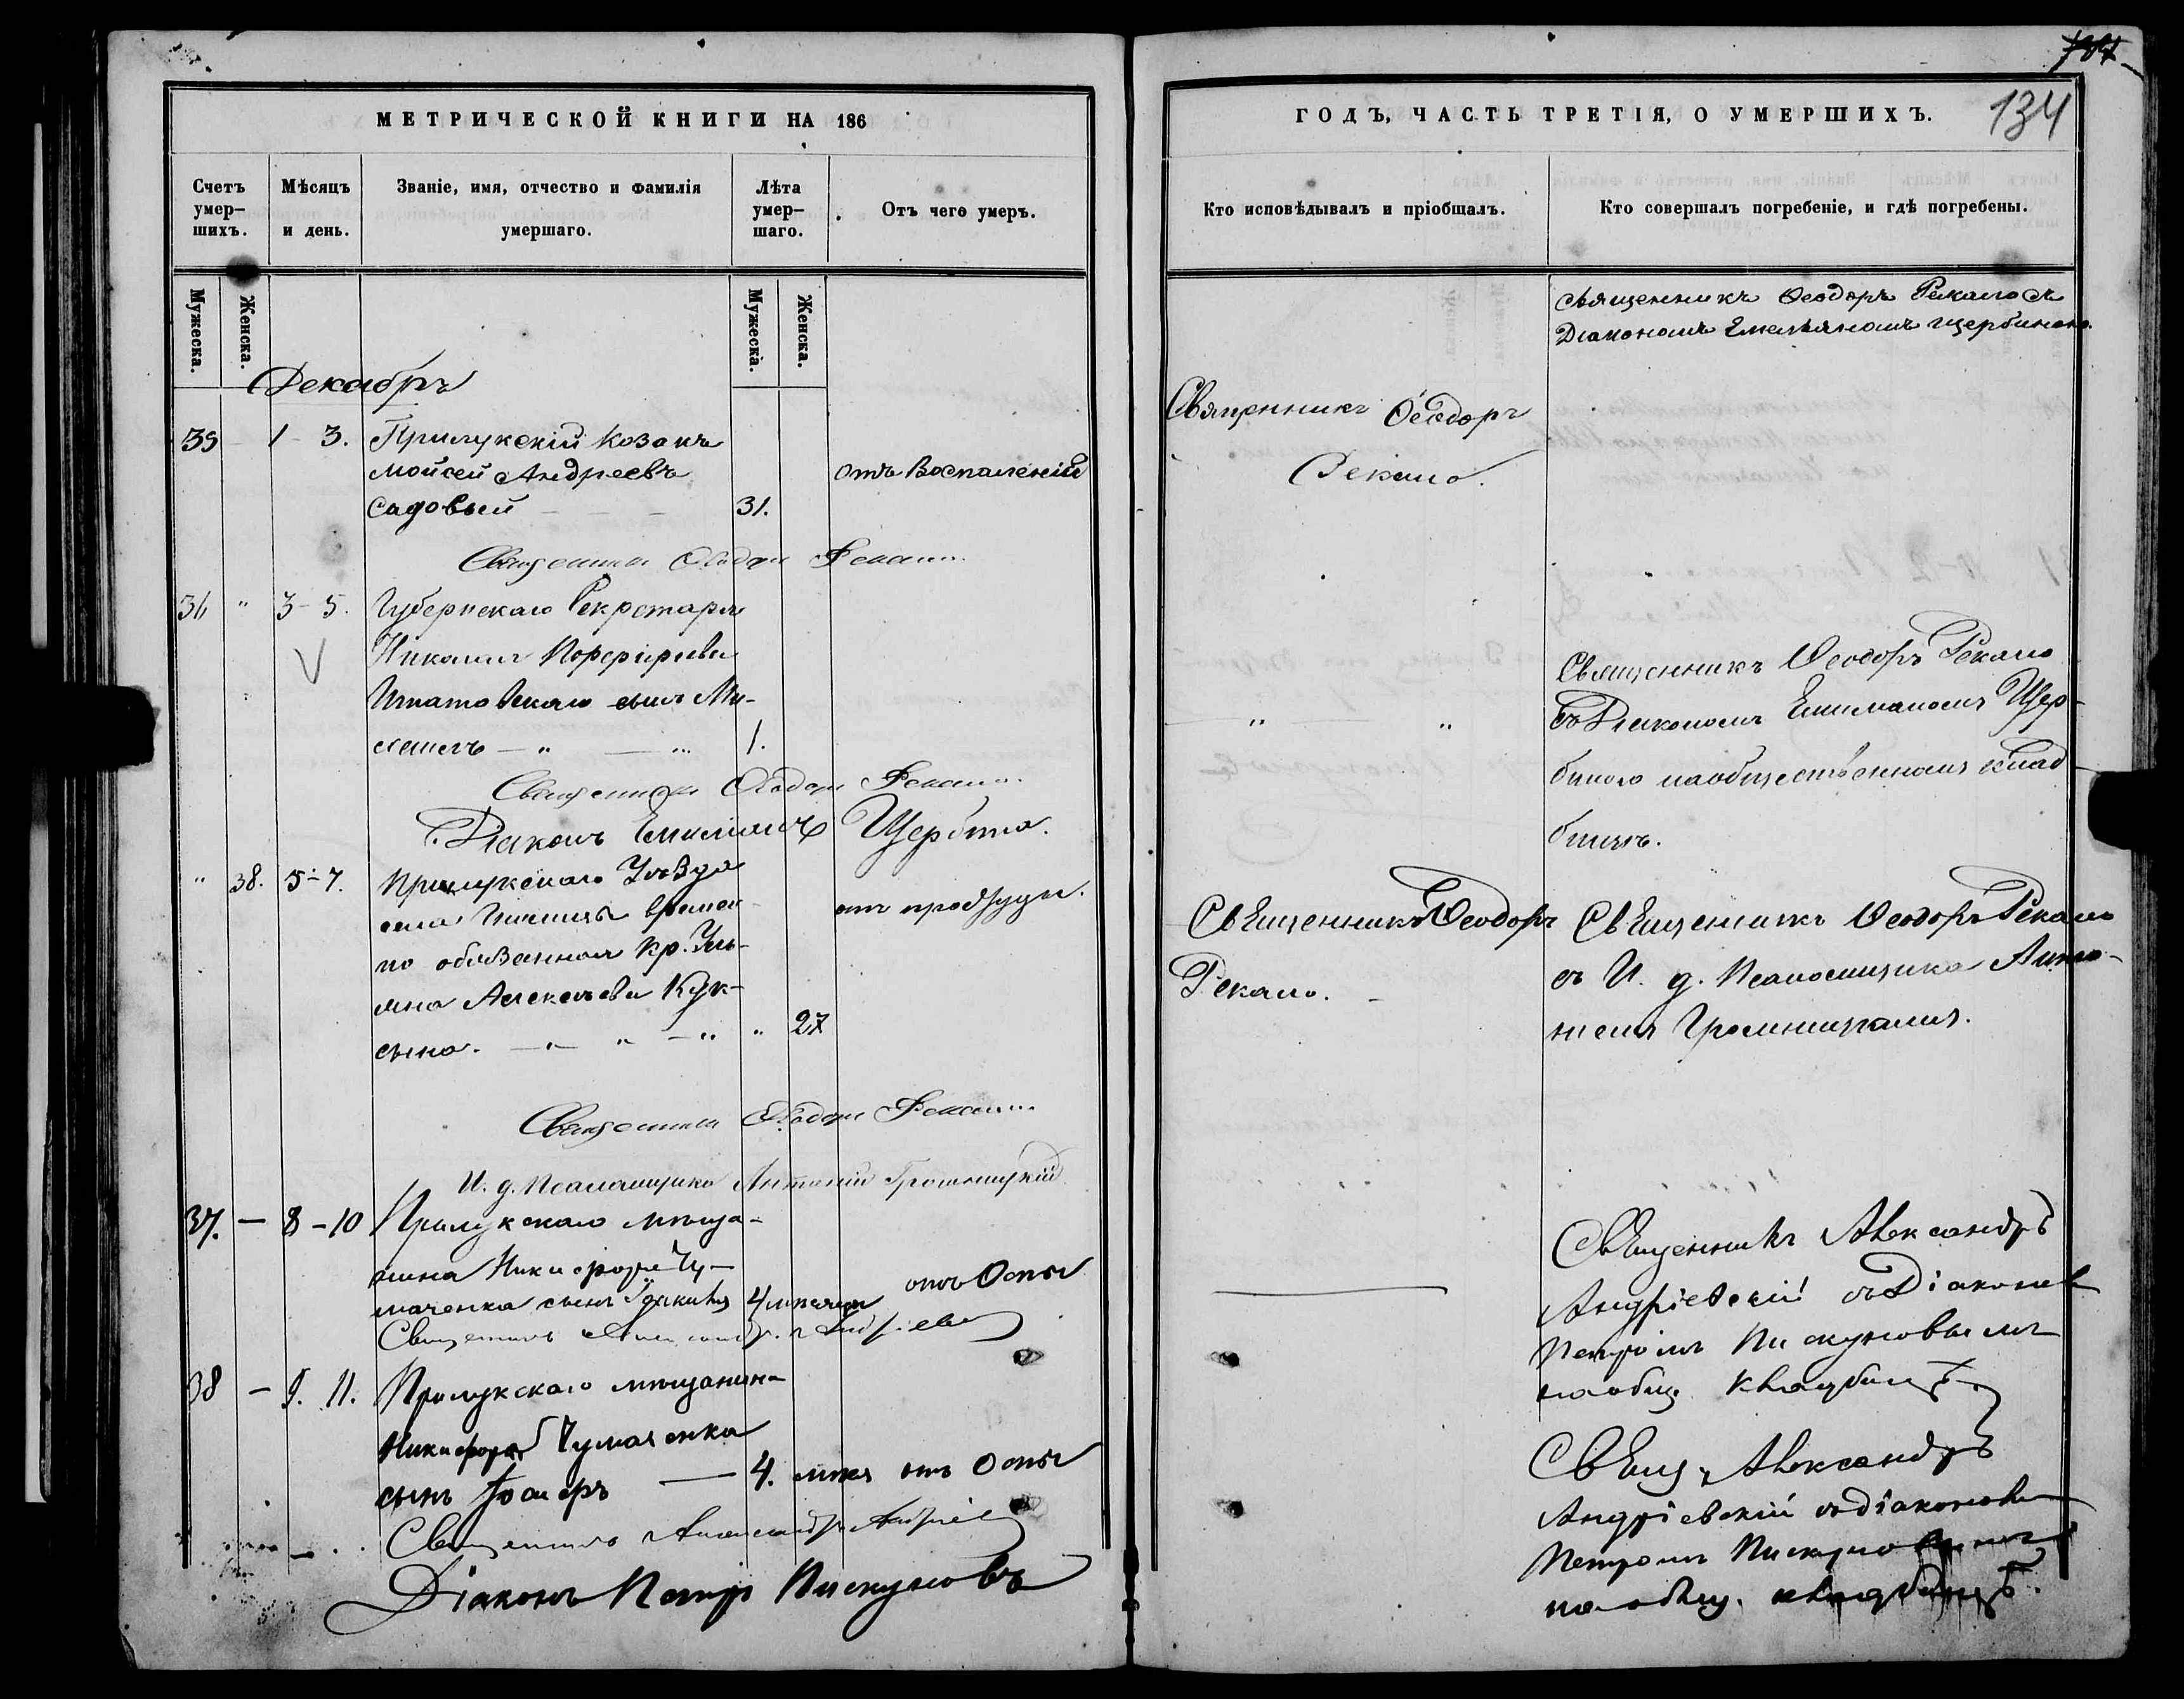 134
МЕТРИЧЕСКОЙ КНИГИ НА 186
Счетъ умер–шихъ.
Мѣсяцъ и день.
Званіе, имя, отчество и фамилія умершаго.
Лѣта умер–шаго.
Отъ чего умеръ.
Мужеска.
Женска.
Мужеска.
Женска.
Декабрь
35 1 - 3. Прилукскій Козакъ
Мойсей Андреевъ отъ Воспаленія
Садовый 31.
Священникъ Ѳеодоръ Рекало
36 " 3 - 5. Губернскаго Секретаря
Николая Порфиріева
Игнатовскаго сынъ Ми-
хаилъ 1.
Священникъ Ѳеодоръ Рекало
Діаконъ Емиліанъ Щербина.
" 38. 5 - 7. Прилукскаго Уѣзда
села времен- отъ простуды.
но обязанная кр. Уль-
яна Алексѣева Кук-
сына. " 27
Священникъ Ѳеодоръ Рекало
И. д. Псаломщика Антоній Громницкій
37. — 8 - 10 Прилукскаго мѣща-
нина Никифора Чу-
маченка сынъ 4 мѣсяца отъ Оспы
Священникъ Александръ Андріевскій
38 — 9. 11. Прилукскаго мѣщанина
Никифора Чумаченка
сынъ 4. мѣс. отъ Оспы
Священникъ Александръ Андріевскій
Діаконъ Петръ Пискуновъ
ГОДЪ, ЧАСТЬ ТРЕТІЯ, О УМЕРШИХЪ.
Кто исповѣдывалъ и пріобщалъ.
Кто совершалъ погребеніе, и гдѣ погребены.
Священникъ Ѳеодоръ Рекало съ
Діакономъ Емельяномъ Щербиною.
Священникъ Ѳеодоръ
Рекало.
Священникъ Ѳеодоръ Рекало
съ Діакономъ Емиліаномъ Щер-
биною на общественномъ клад-
бищѣ.
Священникъ Ѳеодоръ
Рекало.
Священникъ Ѳеодоръ Рекало
съ И. д. Псаломщика Анто-
ніемъ Громницкимъ.
Священникъ Александръ
Андріевскій съ Діакономъ
Петромъ Пискуновымъ
на общ. кладбищѣ.
Свящ. Александръ
Андріевскій съ діакономъ
Петромъ Пискуновымъ
на общ. кладбищѣ.